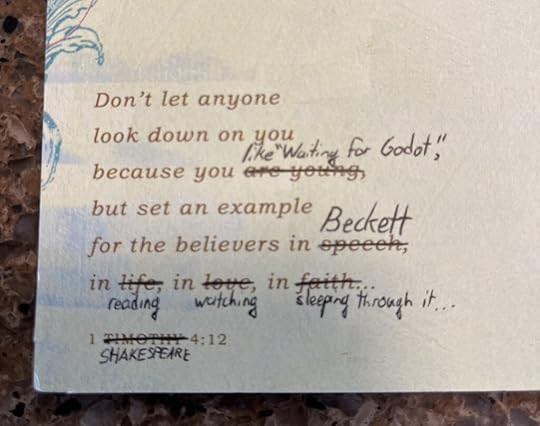 Don't let anyone
look down on you
like "Waiting for Godot",
because you are young,
but set an example
Beckett
for the believers in speech,
in life, in love, in faith...
reading watching sleeping through it...
1 TIMOTHY 4:12
SHAKESPEARE